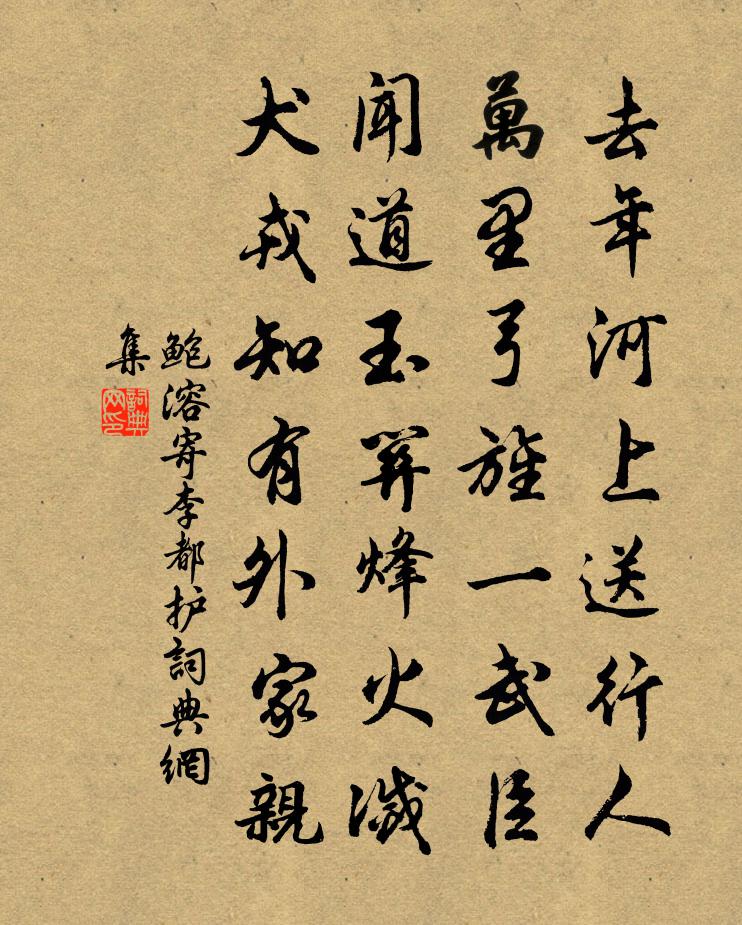 去年河上送行人
萬里弓旌一武臣
聞道玉關烽火滅
犬戎知有外家親
鮑溶寄李都护詞典網
集
詞典
网印